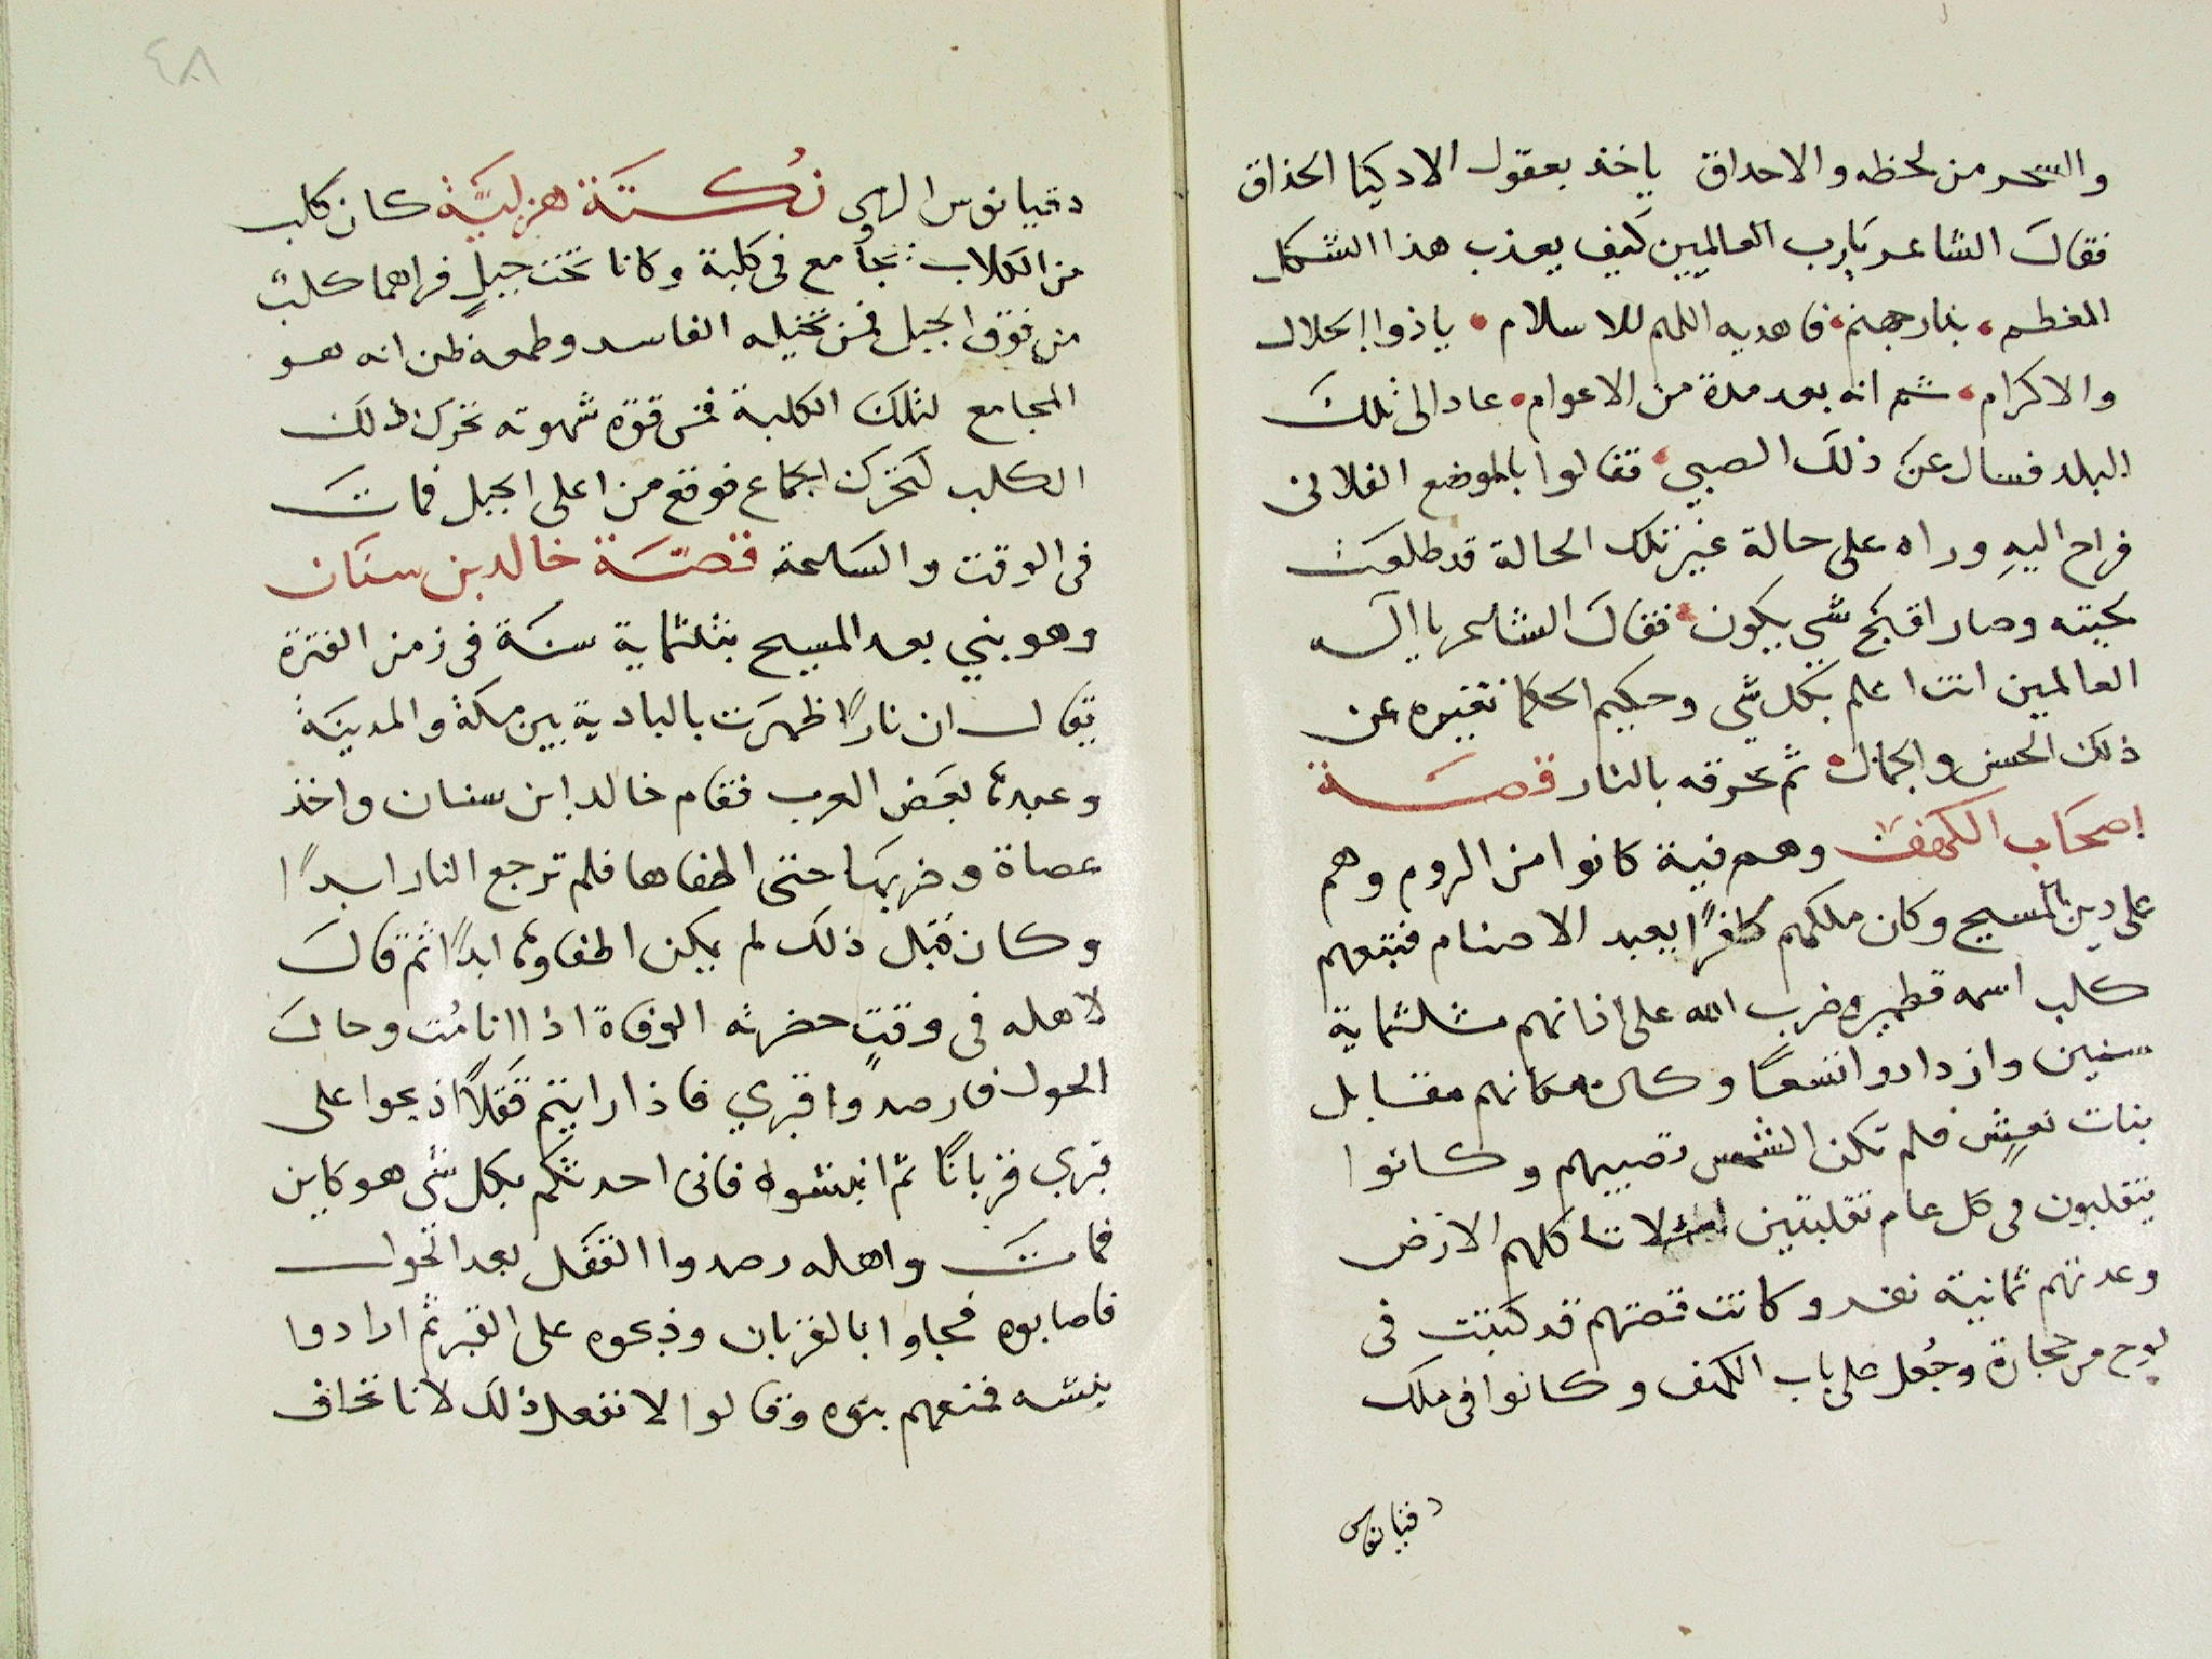 والسحر من لحظه والاحداق ياخذ بعقول الادكيا الحذاق
فقال الشاعر يارب العالميين كيف يعذب هذا الشكل
المغطم • بنار جهنم • فاهديه اللهم للاسلام • ياذوا الجلال
والاكرام • ثم انه بعد مدة من الاعوام • عاد الى تلك
البلد فسال عن ذلك الصبي • فقالوا بالموضع الفلانى
فراح اليهِ وراه على حالة غير تلك الحالة قد طلعت
لحيته وصار اقبح شي يكون • فقال الشاعر يا اله
العالمين انت اعلم بكل شي وحكيم الحكما تغيره عن
ذلك الحسن والجمال • ثم تحرقه بالنار قصة
اصحاب الكهف وهم فية كانوا من الروم وهم
على دين المسيح وكان ملكهم كافرًا يعبد الاصنام فتبعهم
كلب اسمه قطمير وضرب الله على اذانهم ثلثماية
سنين وازدادوا تسعًا وكان مكانهم مقابل
بنات نعشٍ فلم تكن الشمس تصيبهم وكانوا
يتقلبون في كل عام تقلبتين لئلا تاكلهم الارض
وعدتهم ثمانية نفر وكانت قصتهم قد كتبت فى
لوح من حجارة وجُعل على باب الكهف وكانوا فى ملك
دقيانوس
٤٨
دقيانوس الرومى نُكتَة هزليَّة كان كلب
من الكلاب يجامع فى كلبة وكانا تحت جبلٍ فراهما كلب
من فوق الجبل فمن تخيله الفاسد وطمعه ظن انه هو
المجامع لتلك الكلبة فمن قوة شهوته تحرك ذلك
الكلب لتحرك الجماع فوقع من اعلى الجبل فمات
فى الوقت والساعة قصة خالد بن سنان
وهو نبي بعد المسيح بثلثماية سنة فى زمن الفترة
يقال ان نارًا ظهرت بالبادية بين مكة والمدينة
وعبدتها بعض العرب فقام خالد ابن سنان واخذ
عصاة وضربها حتى اطفاها فلم ترجع النار ابدًا
وكان قبل ذلك لم يمكن اطفاوها ابدًا ثم قال
لاهله فى وقتٍ حضرته الوفاة اذا انا مُت وحال
الحول فارصدوا قبري فاذا رايتم قفلاً اذبحوا على
قبري قربانًا ثم انبشوه فانى احدثكم بكل شى هو كاين
فمات واهله رصدوا القفل بعد الحول
فاصابوه فجاوا بالقربان وذبحوه على القبر ثم ارادوا
نبشه فمنعهم بنوه وقالوا لا نفعل ذلك لانا نخاف